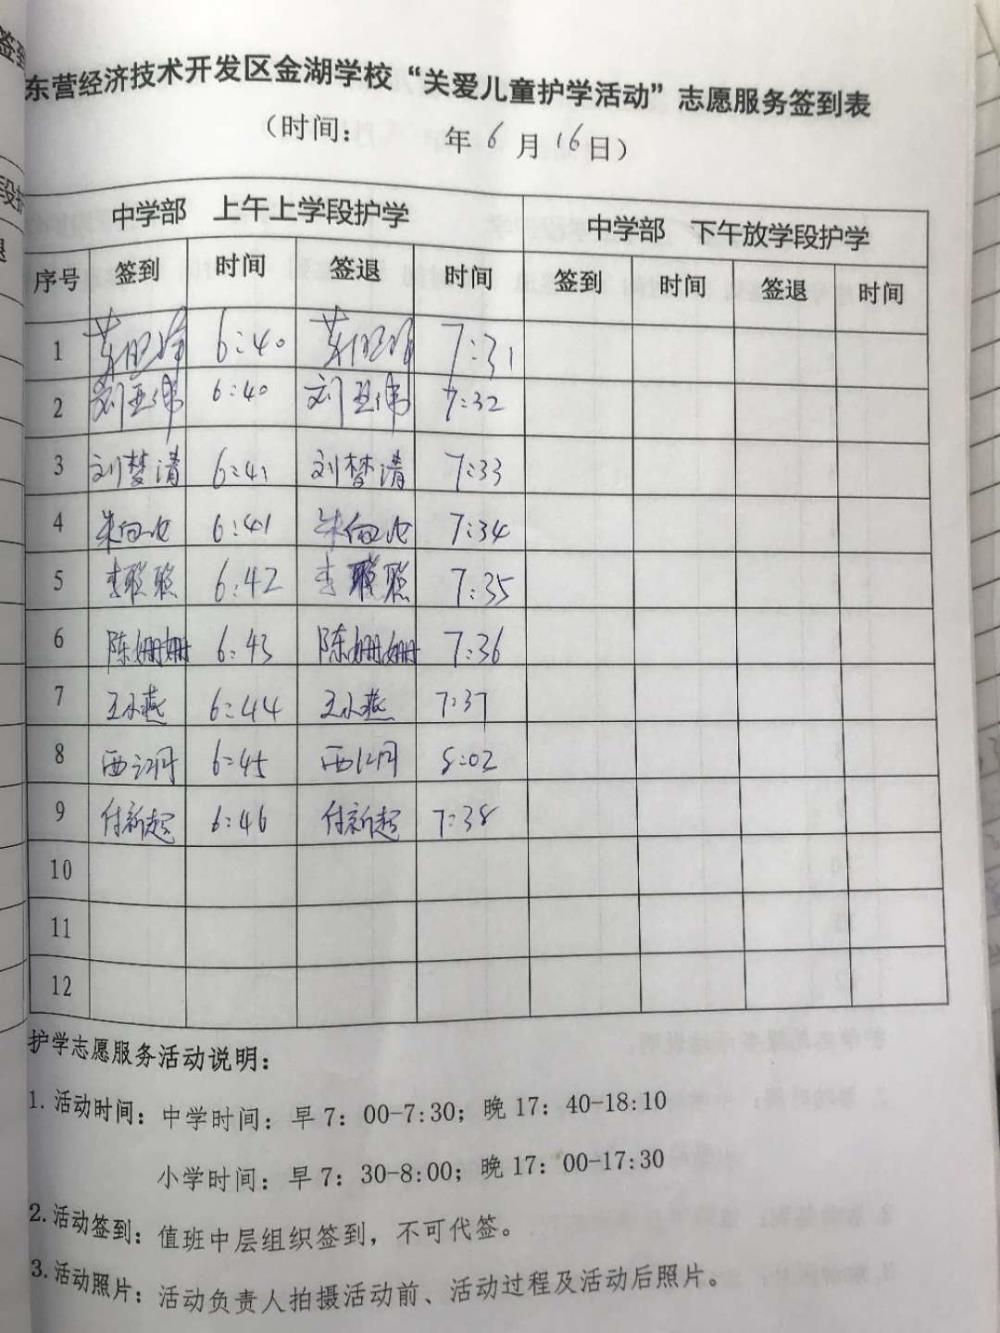 东营经济技术开发区金湖学校“关爱儿童护学活动”志愿服务签到表
（时间： 年 6 月 16 日）
中学部 上午上学段护学 中学部 下午放学段护学
序号 签到 时间 签退 时间 签到 时间 签退 时间
1 6:40 7:31
2 刘亚伟 6:40 刘亚伟 7:32
3 刘梦清 6:41 刘梦清 7:33
4 6:41 7:34
5 李聪聪 6:42 李聪聪 7:35
6 陈姗姗 6:43 陈姗姗 7:36
7 王小燕 6:44 王小燕 7:37
8 6:45 8:02
9 付新起 6:46 付新起 7:38
10
11
12
护学志愿服务活动说明：
1.活动时间：中学时间：早7：00-7:30；晚17：40-18:10
小学时间：早7：30-8:00；晚17：00-17:30
2.活动签到：值班中层组织签到，不可代签。
3.活动照片：活动负责人拍摄活动前、活动过程及活动后照片。